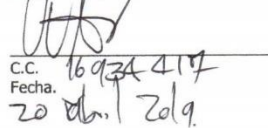 C.C. 16934417
Fecha.
20 Abril 2019